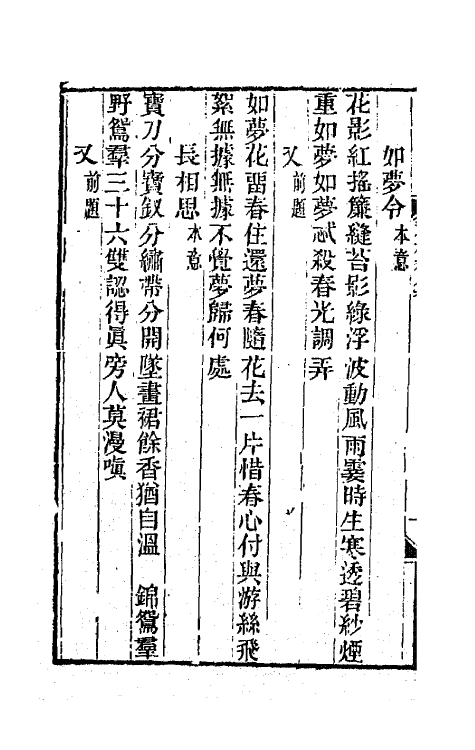 如夢令本意
花影紅搖簾縫苔影綠浮波動風雨霎時生寒透碧紗煙
重如夢如夢忒殺春光調弄
又前題
如夢花畱春住還夢春隨花去一片惜春心付與游絲飛
絮無據無據不覺夢歸何處
長相思本意
寶刀分寶釵分繡帶分開墜畫裙餘香猶自溫　錦鴛羣
野鴛羣三十六雙認得眞旁人莫漫嗔
又前題